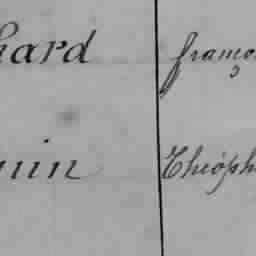 hard franço
nin Théoph